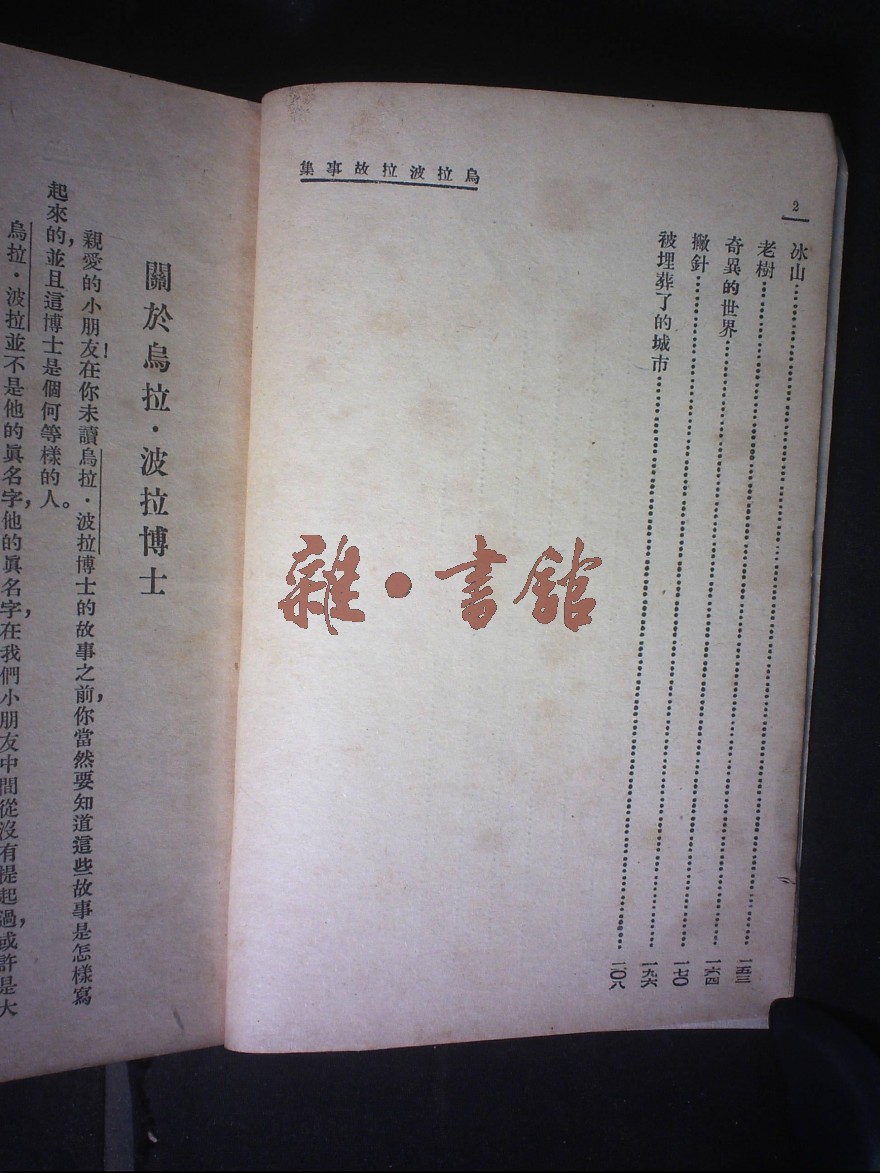 2
烏拉波拉故事集
冰山……一五三
老樹……一六四
奇異的世界……一七〇
撇針……一九六
被埋葬了的城市……一〇八
雜·書館
關於烏拉·波拉博士
親愛的小朋友!在你未讀烏拉·波拉博士的故事之前,你當然要知道這些故事是怎樣寫
起來的,並且這博士是個何等樣的人。
烏拉·波拉並不是他的眞名字,他的眞名字,在我們小朋友中間從沒有提起過,或許是大